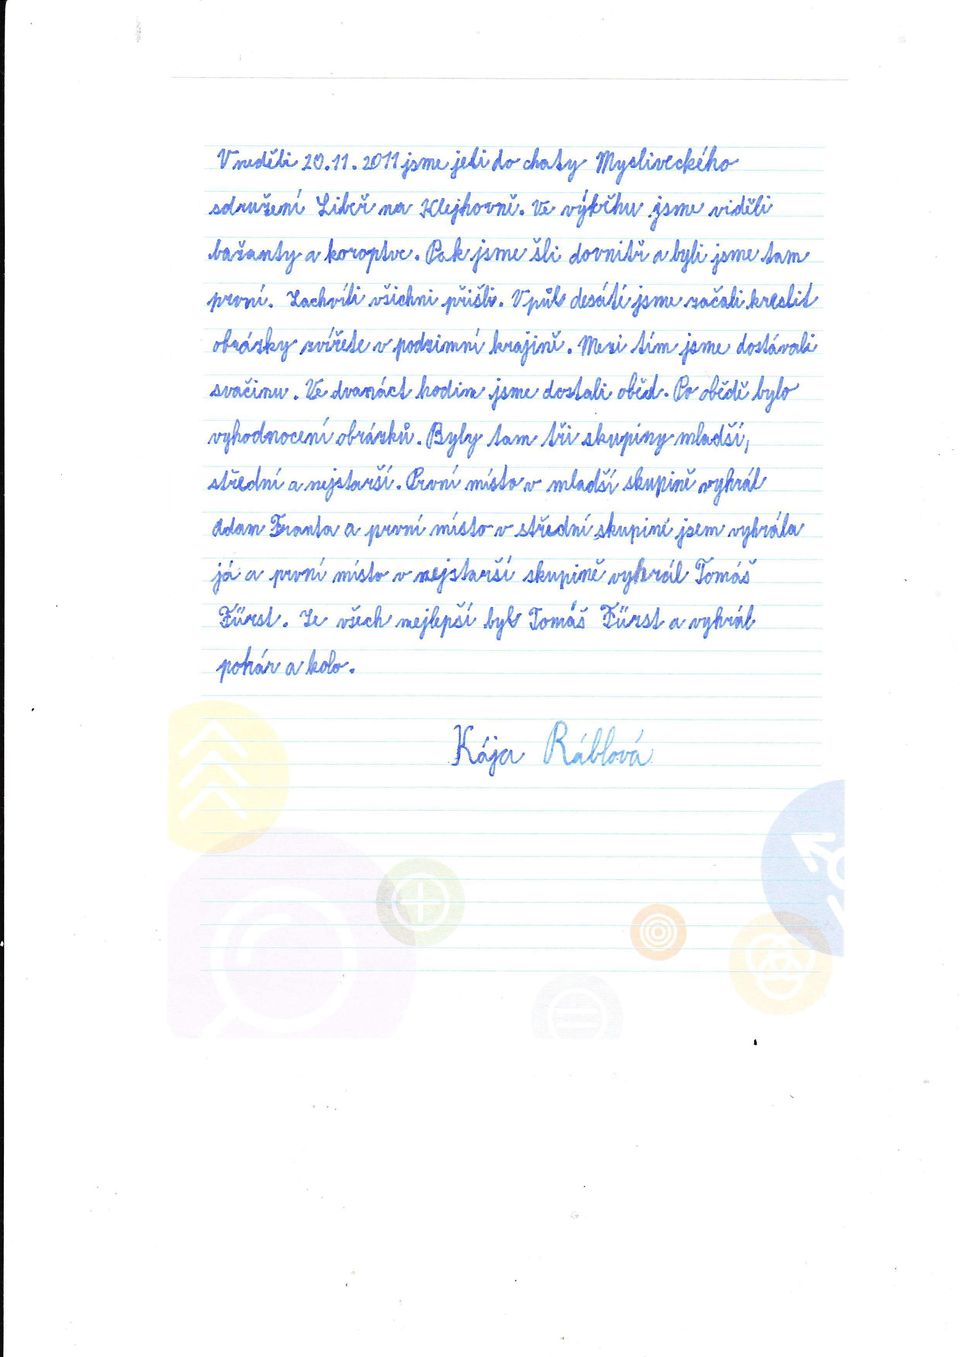 V neděli 20.11.2011 jsme jeli do chaty Mysliveckého
sdružení Libeř na Klejhovně. Ve výběhu jsme viděli
bažanty a koroptve. Pak jsme šli dovnitř a byli jsme tam
první. Zachvíli všichni přišli. V půl desáté jsme začali kreslit
obrázky zvířete v podzimní krajině. Mezi tím jsme dostávali
svačinu. Ve dvanáct hodin jsme dostali oběd. Po obědě bylo
vyhodnocení obrázků. Byly tam tři skupiny mladší,
střední a nejstarší. První místo v mladší skupině vyhrál
Adam Franta a první místo v střední skupině jsem vyhrála
já a první místo v nejstarší skupině vyhrál Tomáš
Fürst. Ze všech nejlepší byl Tomáš Fürst a vyhrál
pohár a kolo.
Kája Ráblová